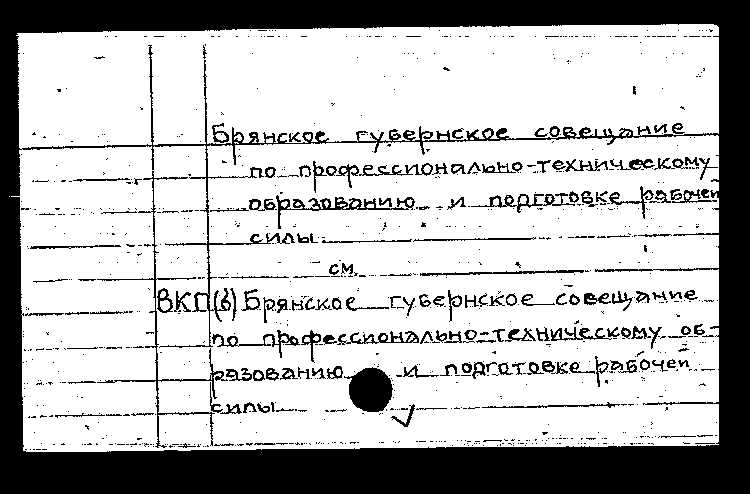 Брянское губернское совещание
по профессионально-техническому
образованию и подготовке рабочей
силы
см.
ВКП(б) Брянское губернское совещание
по профессионально-техническому об-
разованию и подготовке рабочей
силы